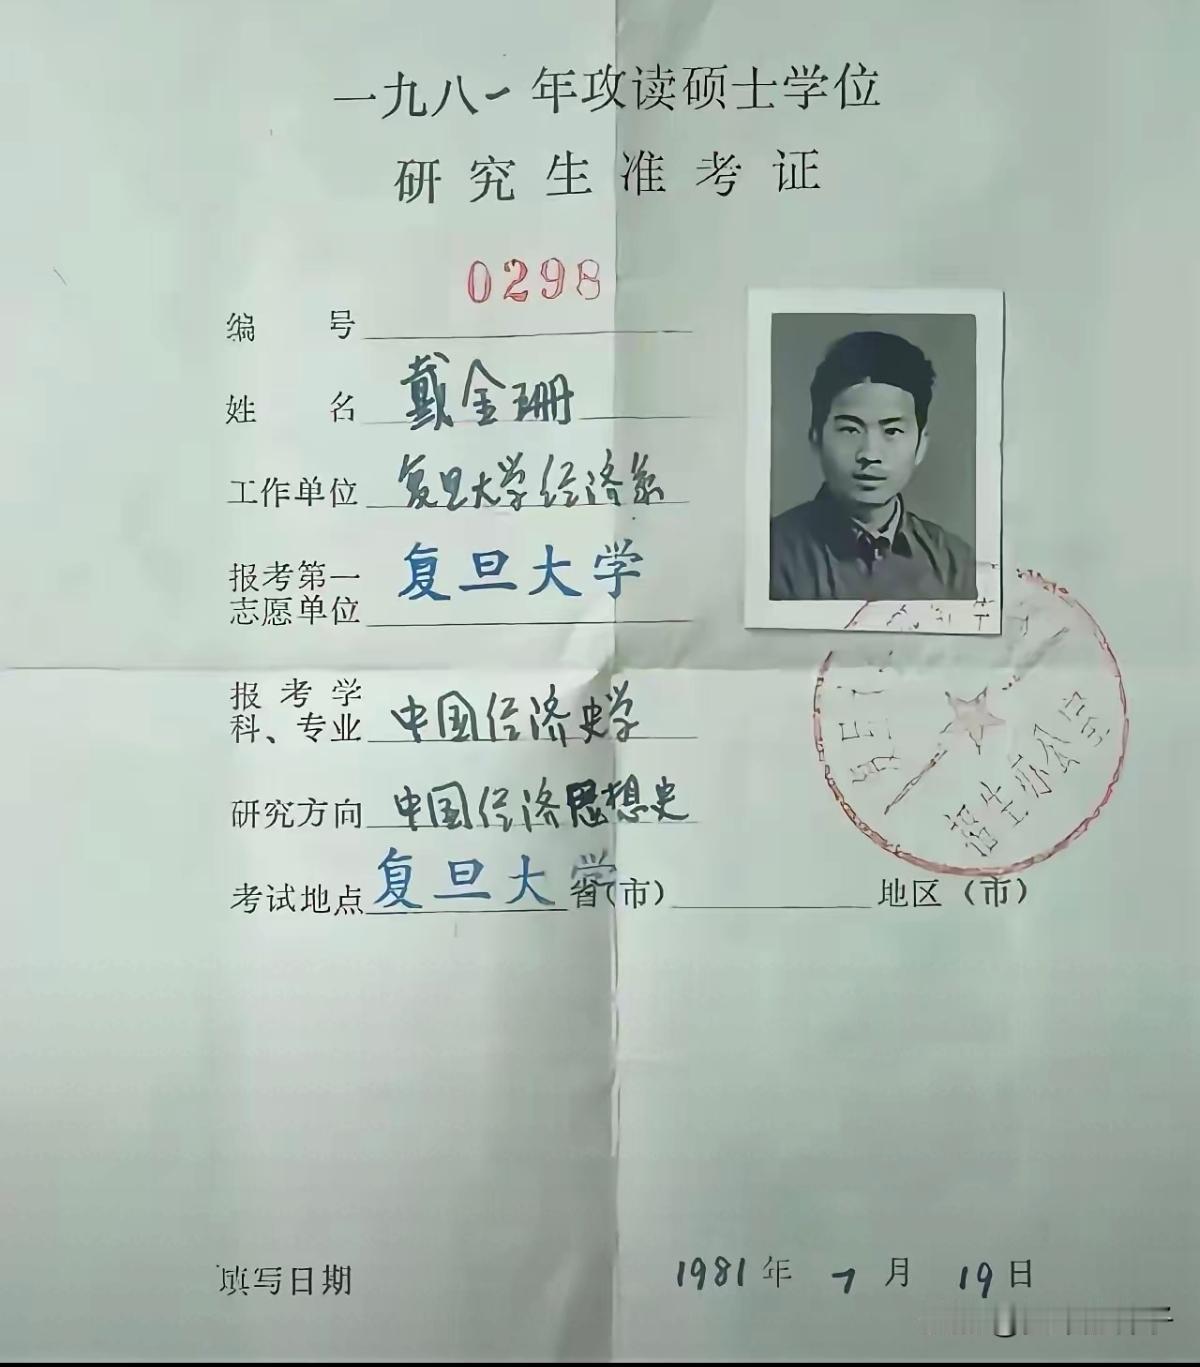 一九八一年攻读硕士学位
研究生准考证
0298
编 号
姓 名 戴金珊
工作单位 复旦大学经济系
报考第一志愿单位 复旦大学
报考学科、专业 中国经济史学
研究方向 中国经济思想史
考试地点 复旦大学 省(市) 地区(市)
招生办公室
填写日期 1981年 7月 19日